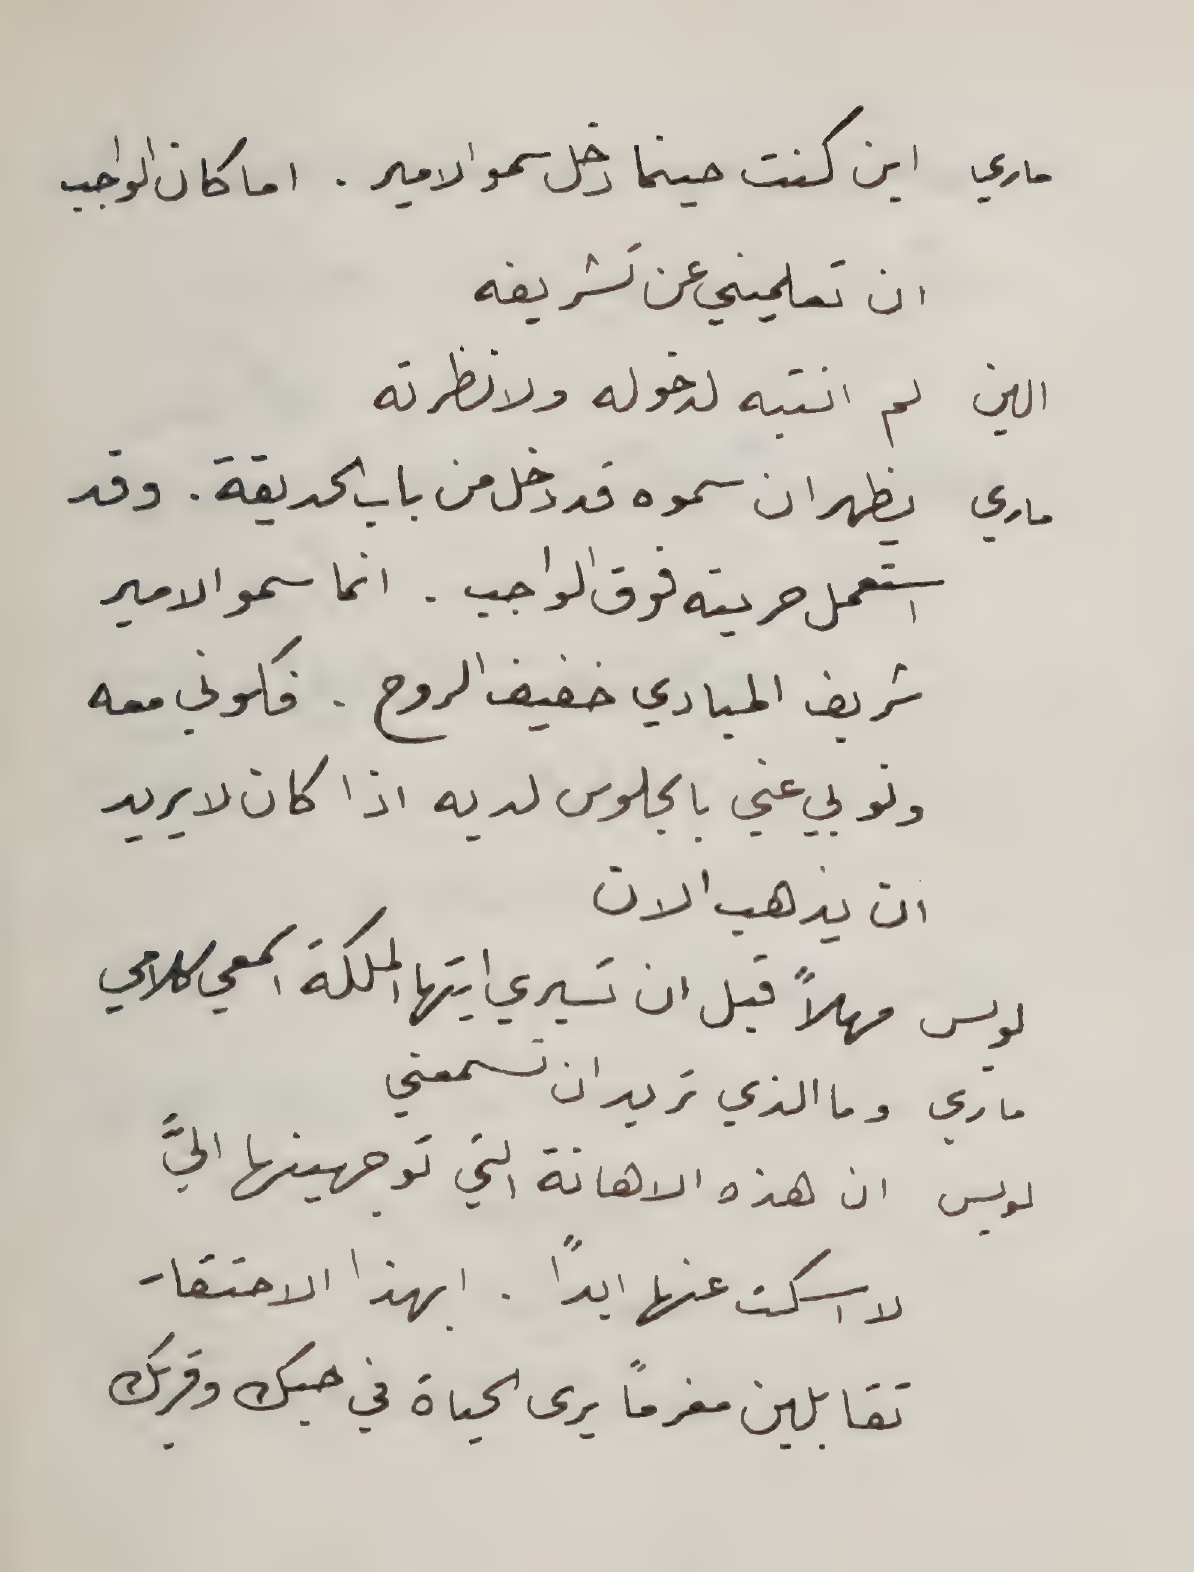 ماري اين كنت حينما دخل سمو الامير . اما كان الواجب
ان تعلميني عن تشريفه
الين لم انتبه لدخوله ولا نظرته
ماري يظهر ان سموه قد دخل من باب الحديقة . وقد
استعمل حريته فوق الواجب . انما سمو الامير
شريف المبادي خفيف الروح . فكوني معه
ونوبي عني بالجلوس لديه اذا كان لا يريد
ان يذهب الان
لويس مهلاً قبل ان تسيري ايتها الملكة اسمعي كلامي
ماري وما الذي تريد ان تسمعني
لويس ان هذه الاهانة التي توجهينها اليَّ
لا اسكت عنها ابداً . ابهذا الاحتقار
تقابلين مغرماً يرى الحياة في حبك وقربك